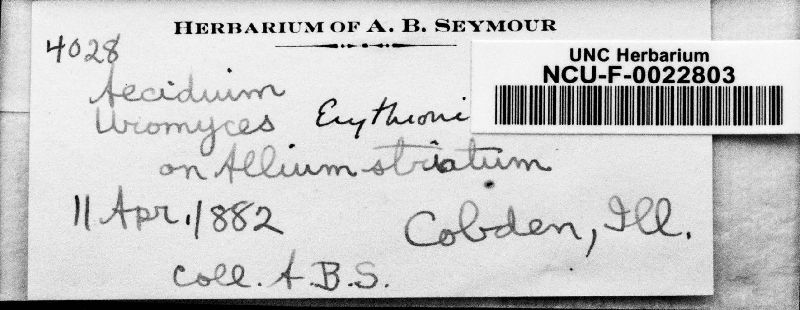 HERBARIUM OF A. B. SEYMOUR
4028
UNC Herbarium
NCU-F-0022803
Aecidium
Uromyces Erythroni
on Allium striatum
11 Apr. 1882
Cobden, Ill.
Coll. A.B.S.